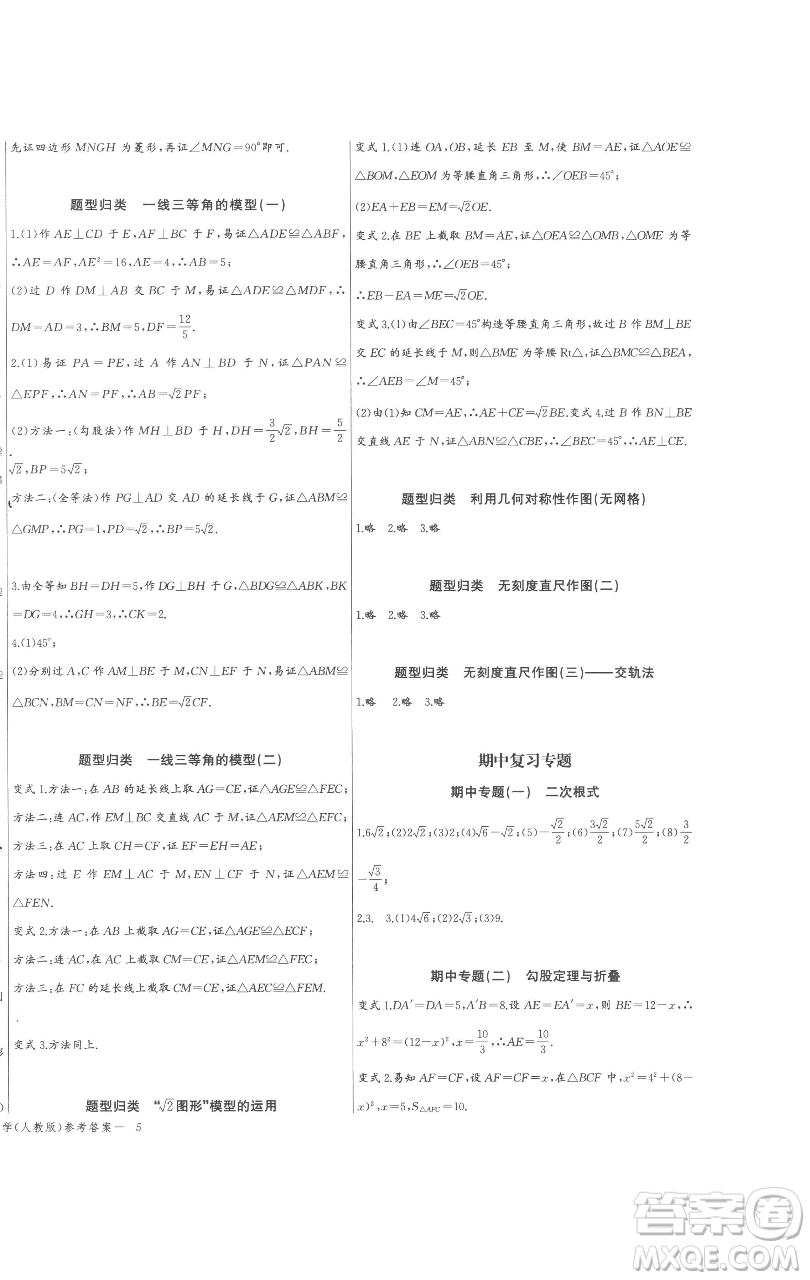 先证四边形 MNGH 为菱形,再证∠MNG=90°即可.
题型归类 一线三等角的模型(一)
1.(1)作 AE⊥CD 于 E,AF⊥BC 于 F,易证△ADE≌△ABF,
∴AE=AF,AE²=16,AE=4,∴AB=5;
(2)过 D 作 DM⊥AB 交 BC 于 M,易证△ADE≌△MDF,∴
DM=AD=3,∴BM=5,DF=12/5.
2.(1)易证 PA=PE,过 A 作 AN⊥BD 于 N,证△PAN≌
△EPF,∴AN=PF,∴AB=√2PF;
(2)方法一:(勾股法)作 MH⊥BD 于 H,DH=3/2√2,BH=5/2
√2,BP=5√2;
方法二:(全等法)作 PG⊥AD 交 AD 的延长线于 G,证△ABM≌
△GMP,∴PG=1,PD=√2,∴BP=5√2.
3.由全等知 BH=DH=5,作 DG⊥BH 于 G,△BDG≌△ABK,BK
=DG=4,∴GH=3,∴CK=2.
4.(1)45°;
(2)分别过 A,C 作 AM⊥BE 于 M,CN⊥EF 于 N,易证△ABM≌
△BCN,BM=CN=NF,∴BE=√2CF.
题型归类 一线三等角的模型(二)
变式 1.方法一:在 AB 的延长线上取 AG=CE,证△AGE≌△FEC;
方法二:连 AC,作 EM⊥BC 交直线 AC 于 M,证△AME≌△EFC;
方法三:在 CD 上取 CH=CE,证 EF=EH=AE;
方法四:过 E 作 EM⊥AC 于 M,EN⊥CF 于 N,证△AEM≌
△FEN.
变式 2.方法一:在 AB 上截取 AG=CE,证△AGE≌△FEC;
方法二:连 AC,在 AC 上截取 CM=CE,证△AEM≌△FEC;
方法三:在 FC 的延长线上截取 CM=CE,证△AEC≌△FEM.
变式 3.方法同上.
题型归类 “√2图形”模型的运用
学(人教版)参考答案— 5
变式 1.(1)连 OA,OB,延长 EB 至 M,使 BM=AE,证△AOE≌
△BOM,△EOM 为等腰直角三角形,∴∠OEB=45°;
(2)EA+EB=EM=√2OE.
变式 2.在 BE 上截取 BM=AE,证△OEA≌△OMB,△OME 为等
腰直角三角形,∴∠OEB=45°;
∴EB-EA=ME=√2OE.
变式 3.(1)由∠BEC=45°构造等腰直角三角形,故过 B 作 BM⊥BE
交 EC 的延长线于 M,则△BME 为等腰 Rt△,证△BMC≌△BEA,
∴∠AEB=∠M=45°;
(2)由(1)知 CM=AE,∴AE+CE=√2BE.变式 4.过 B 作 BN⊥BE
交直线 AE 于 N,证△ABN≌△CBE,∴∠BEC=45°,∴AE⊥CE.
题型归类 利用几何对称性作图(无网格)
1.略 2.略 3.略
题型归类 无刻度直尺作图(二)
1.略 2.略 3.略
题型归类 无刻度直尺作图(三)——交轨法
1.略 2.略 3.略
期中复习专题
期中专题(一) 二次根式
1.6√2;(2)2√2;(3)2;(4)√6-√2;(5)-√2/2;(6)3√2/2;(7)5√2/2;(8)3/2
-√3/4;
2.3. 3.(1)4√6;(2)2√3;(3)9.
期中专题(二) 勾股定理与折叠
变式 1.DA′=DA=5,A′B=8.设 AE=EA′=x,则 BE=12-x,∴
x²+8²=(12-x)²,x=10/3,∴AE=10/3.
变式 2.易知 AF=CF,设 AF=CF=x,在△BCF 中,x²=4²+(8-
x)²,x=5,S△AFC=10.
答案卷
MXQE.COM